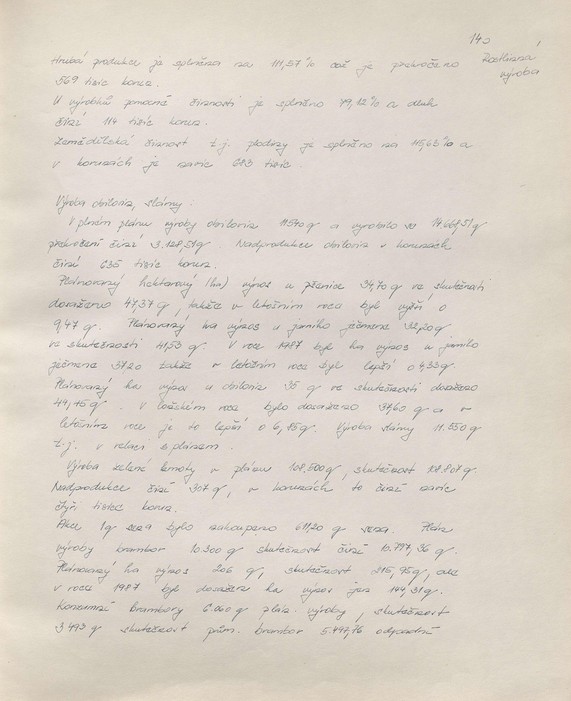 143
Hrubá produkce je splněna na 111,57 % což je překročeno
Rostlinná
výroba
569 tisíc korun.
U výrobků pomocné činnosti je splněno 79,12 % a dluh
činí 114 tisíc korun.
Zemědělská činnost t.j. plodiny je splněno na 115,63 % a
v korunách je navíc 683 tisíc
Výroba obilovin, slámy.
V plném plánu výroby obilovin 11540 q a vyrobilo se 14.668,51 q
překročení činí 3.128,51 q. Nadprodukce obilovin v korunách
činí 635 tisíc korun.
Plánovaný hektarový (ha) výnos u pšenice 34,70 q ve skutečnosti
dosaženo 47,37 q, takže v letošním roce byl vyšší o
9,47 q. Plánovaný ha výnos u jarního ječmene 32,20 q,
ve skutečnosti 41,53 q. V roce 1987 byl ha výnos u jarního
ječmene 37,20 takže v letošním roce byl lepší o 4,33 q.
Plánovaný ha výnos u obilovin 35 q ve skutečnosti dosaženo
44,45 q. V loňském roce bylo dosaženo 37,60 q a v
letošním roce je to lepší o 6,85 q. Výroba slámy 11.550 q
t.j. v relaci s plánem.
Výroba zelené hmoty v plánu 108.500 q, skutečnost 108.807 q.
Nadprodukce činí 307 q, v korunách to činí navíc
čtyři tisíce korun.
bylo nakoupeno 611,20 q sena. Plán
výroby brambor 10300 q skutečnost činí 10.797,36 q.
Plánovaný ha výnos 206 q, skutečnost 215,95 q, ale
v roce 1987 byl dosažen ha výnos jen 144,31 q.
Konzumní brambory 6.000 q plán. výroby, skutečnost
3.493 q skutečnost prům. brambor 5.497,76 odpadní